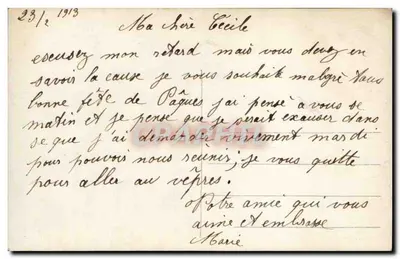 23/2 1913
Ma chère Cécile
escusez mon retard mais vous devez en
savoir la cause je vous souhaite malgrè tous
bonne fête de Pâques j'ai pensè a vous se
matin et je pense que je serait exauser dans
se que j'ai demandè vivement mardi
pour pouvoir nous réunir, je vous quitte
pour aller au vêpres.
Votre amie qui vous
aime et embrasse
Marie